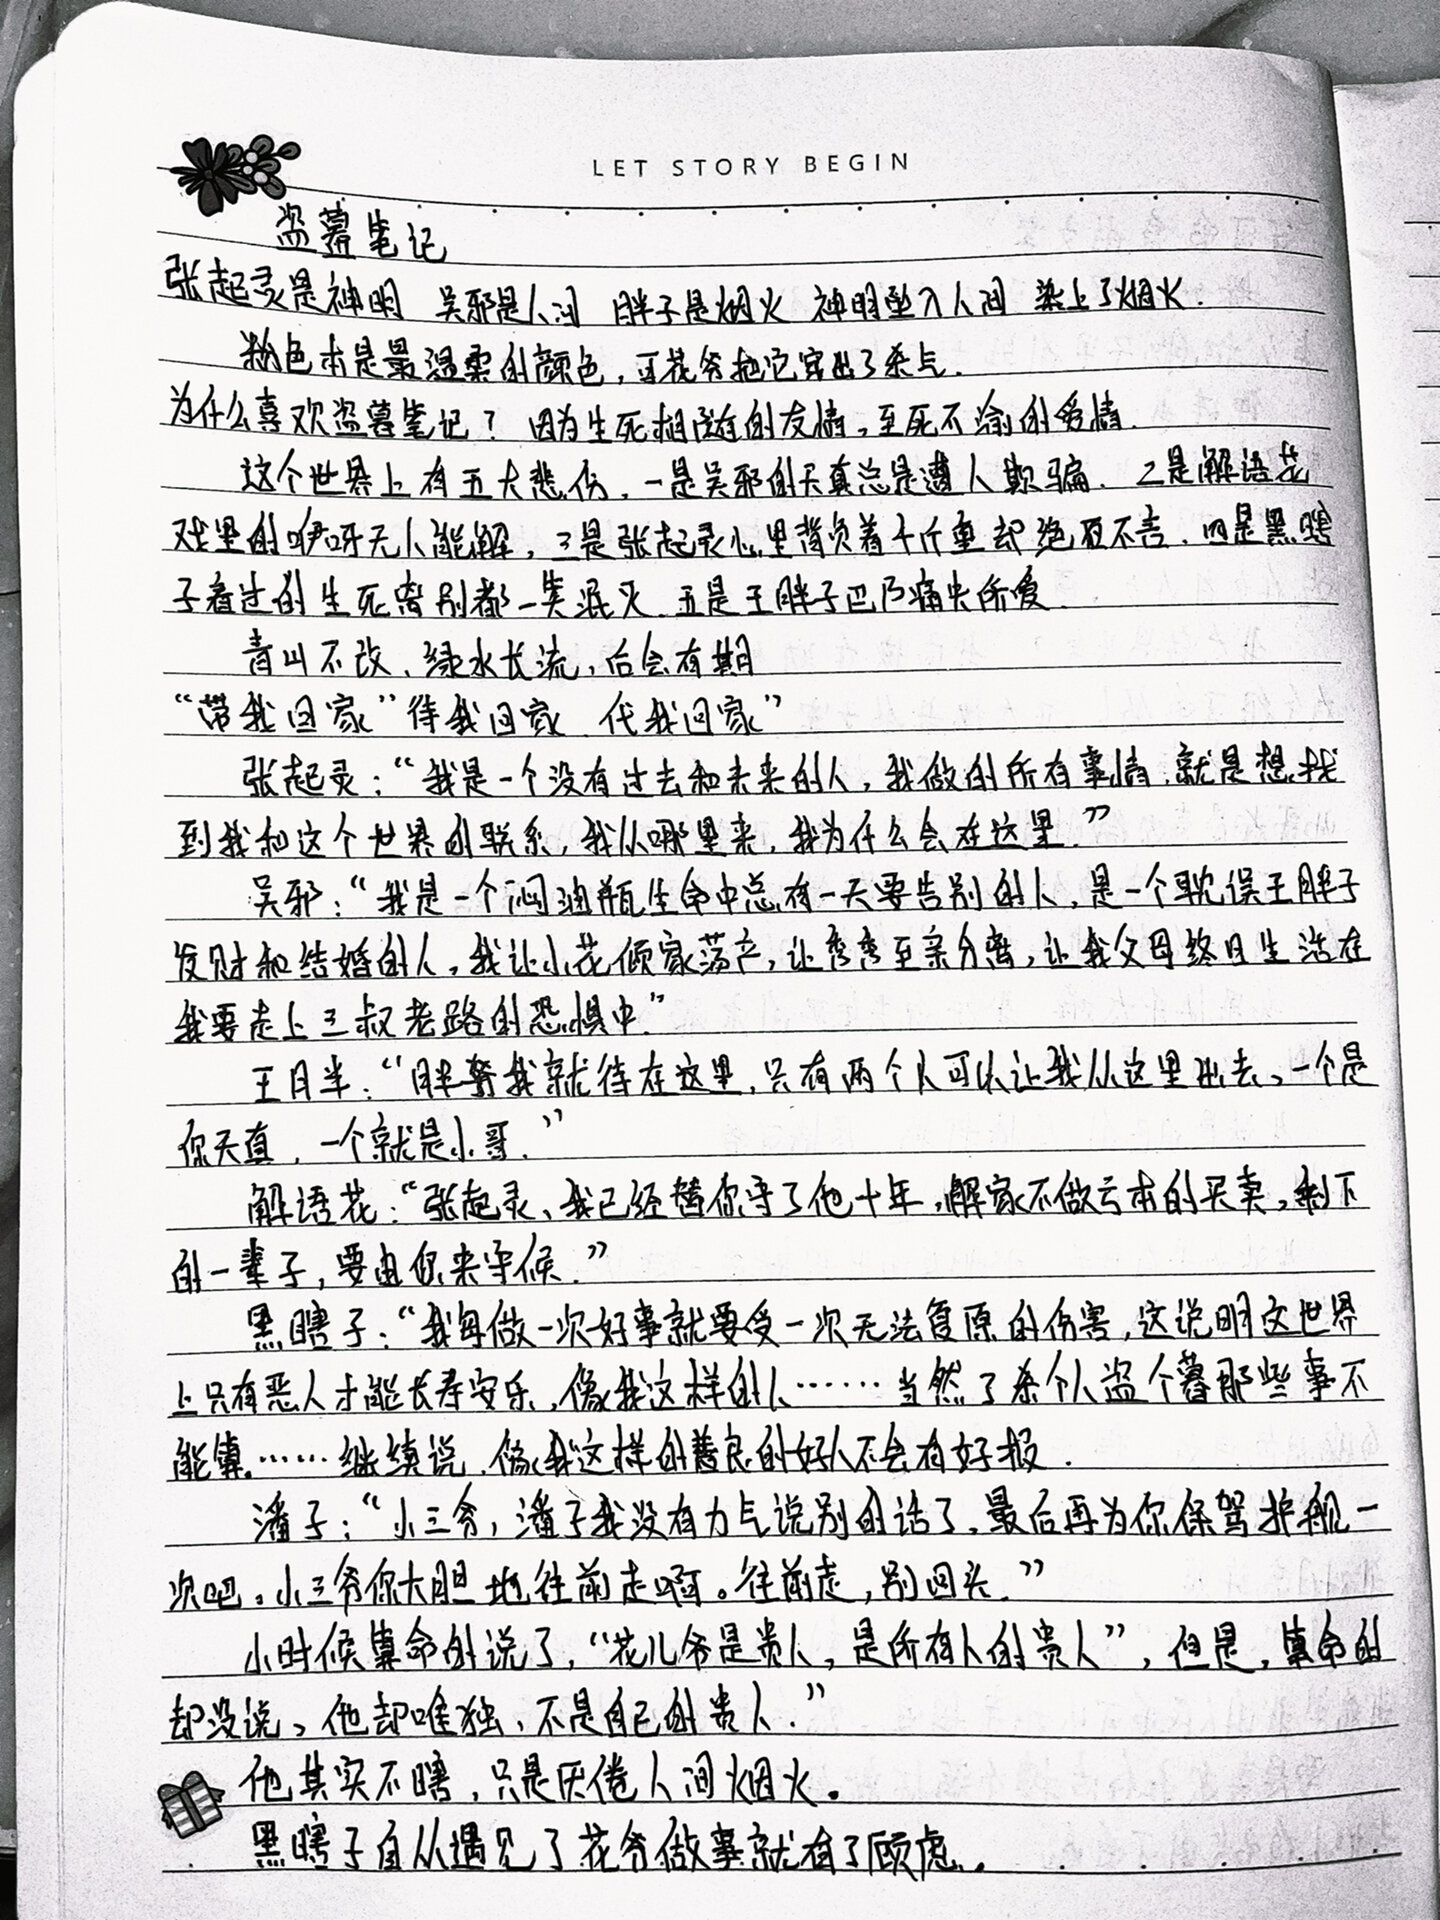 LET STORY BEGIN
盗墓笔记
张起灵是神明 吴邪是人间 胖子是烟火 神明坠入人间 染上了烟火.
粉色本是最温柔的颜色，可花爷把它穿出了杀气.
为什么喜欢盗墓笔记？因为生死相随的友情，至死不渝的爱情.
这个世界上有五大悲伤，一是吴邪的天真总是遭人欺骗. 二是解语花
戏里的咿呀无人能解，三是张起灵心里背负着千斤重却绝口不言. 四是黑瞎
子看过的生死离别都一一泯灭. 五是王胖子巴乃痛失所爱.
青山不改、绿水长流，后会有期
“带我回家”待我回家 代我回家”
张起灵：“我是一个没有过去和未来的人，我做的所有事情，就是想找
到我和这个世界的联系，我从哪里来，我为什么会在这里.”
吴邪：“我是一个闷油瓶生命中总有一天要告别的人，是一个耽误王胖子
发财和结婚的人，我让小花倾家荡产，让秀秀至亲分离，让我父母终日生活在
我要走上三叔老路的恐惧中”
王月半：“胖爷我就待在这里，只有两个人可以让我从这里出去、一个是
你天真，一个就是小哥.”
解语花：“张起灵、我已经替你守了他十年，解家不做亏本的买卖，剩下
的一辈子，要由你来守候.”
黑瞎子：“我每做一次好事就要受一次无法复原的伤害，这说明这世界
上只有恶人才能长寿安乐，像我这样的人……当然了杀个人盗个墓那些事不
能算……继续说，像我这样的善良的好人不会有好报.
潘子：“小三爷，潘子我没有力气说别的话了，最后再为你保驾护航一
次吧。小三爷你大胆地往前走啊。往前走，别回头.”
小时候算命的说了，“花儿爷是贵人，是所有人的贵人”，但是，算命的
却没说、他却唯独、不是自己的贵人.”
他其实不瞎，只是厌倦人间烟火。
黑瞎子自从遇见了花爷做事就有了顾虑。